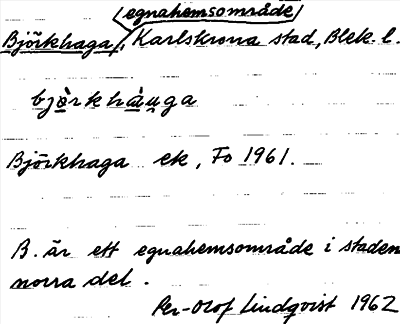 egnahemsområde
Björkhaga, Karlskrona stad, Blek. l.
bjò̤rkhà̤ṳga
Björkhaga ek, Fo 1961.
B. är ett egnahemsområde i staden
norra del.
Per-Olof Lindqvist 1962